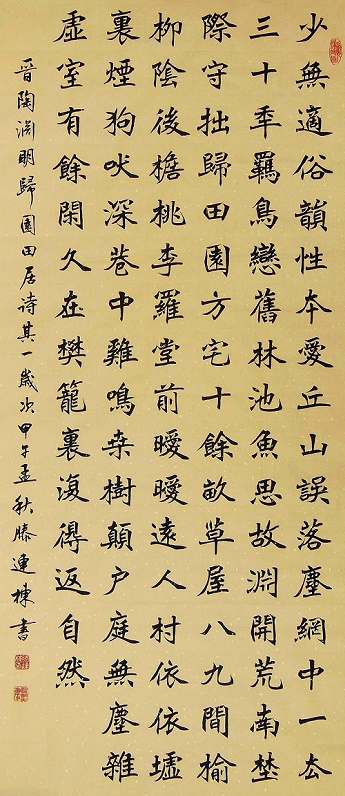 少無適俗韻性夲愛丘山誤落塵網中一厺
三十秊羈鳥戀舊林池魚思故淵開荒南埜
際守拙歸田園方宅十餘畝草屋八九間榆
柳陰後檐桃李羅堂前曖曖遠人村依依墟
裏煙狗吠深巷中雞鳴桒樹顛户庭無塵雜
虛室有餘閑久在樊籠裏復得返自然
晉陶渊明歸園田居诗其一歲次甲午孟秋滕連棟書